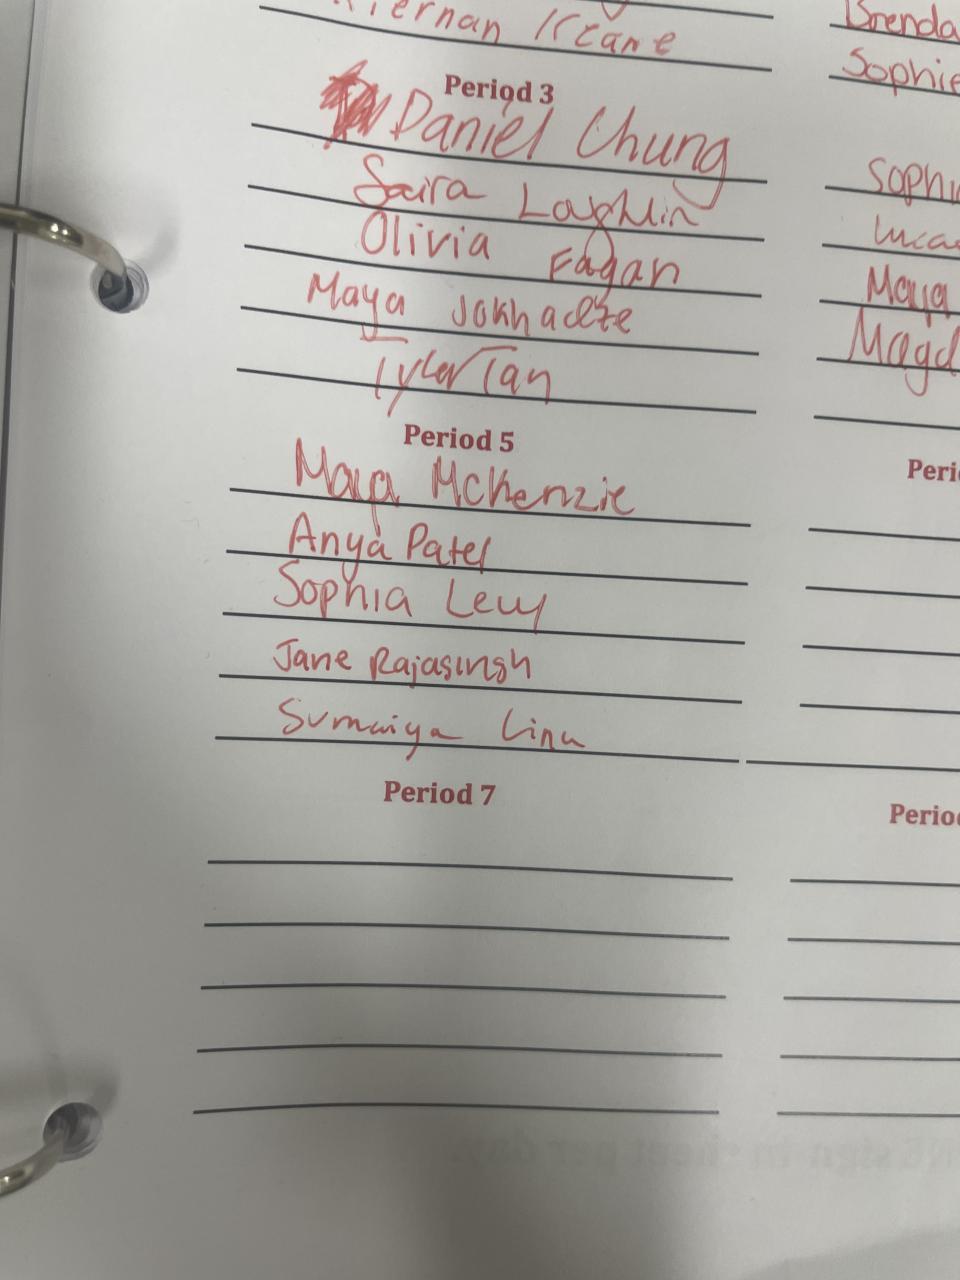 Kiernan Keane
Period 3
Daniel Chung
Saira Loughlin
Olivia Fagan
Maya Jokhadze
Tyler Tan
Period 5
Maya McKenzie
Anya Patel
Sophia Levy
Jane Rajasingh
Sumaiya Lina
Period 7
Brenda
Sophie
Maya
Magd
Peri
Perio
sign-in sheet per day.